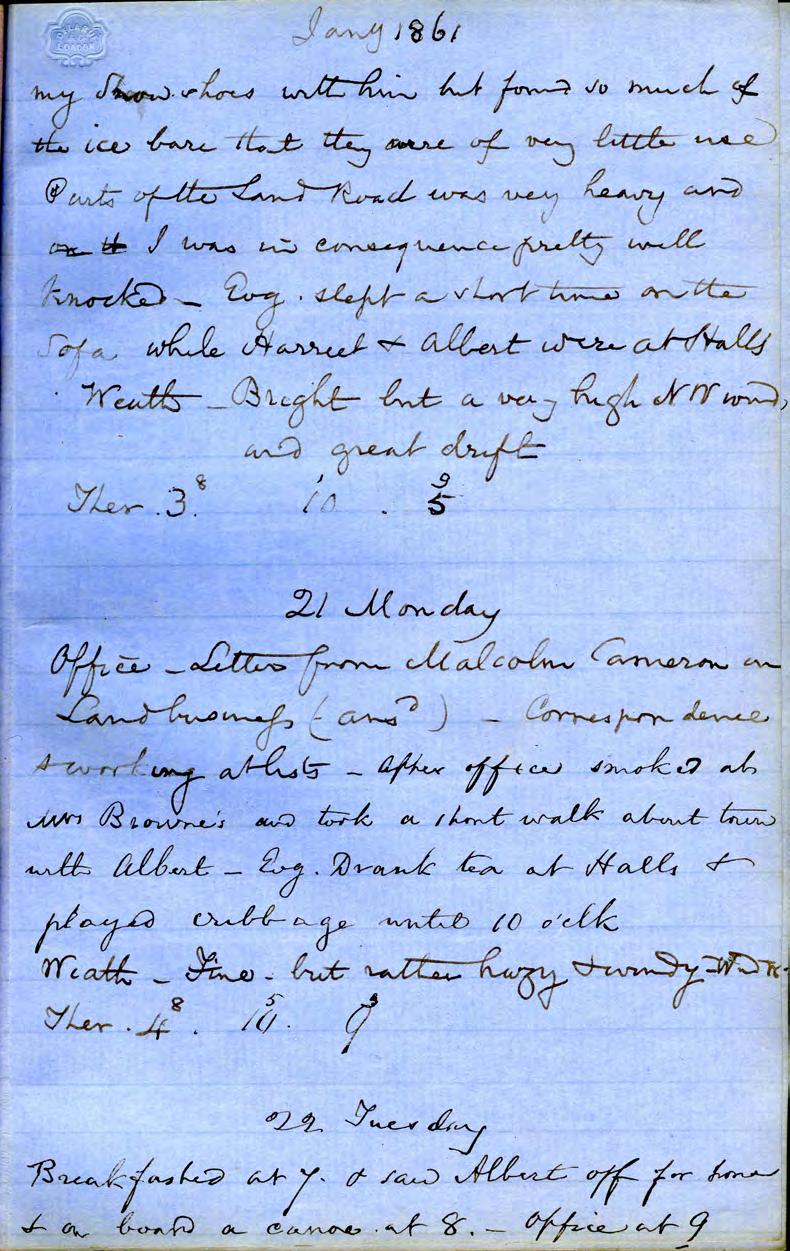 Jany 1861
my Snow shoes with him but found so much of
the ice bare that they were of very little use
Parts of the Land Road was very heavy and
on it I was in consequence pretty well
knocked - Evg. slept a short time on the
Sofa while Harriet & Albert were at Halls
Weath - Bright but a very high NW wind,
and great drift
Ther. 3 8 10 1 5 9
21 Monday
Office - Letter from Malcolm Cameron on
Land business (ansd) - Correspondence
& working at lists - After office smoked at
Mrs Browne's and took a short walk about town
with Albert - Evg. Drank tea at Halls &
played cribbage until 10 o'clk
Weath - Fine - but rather hazy & windy - Wind
Ther. 4 8. 10 5. 9 9
22 Tuesday
Breakfasted at 7. & saw Albert off for home
& on board a canoe at 8. - Office at 9